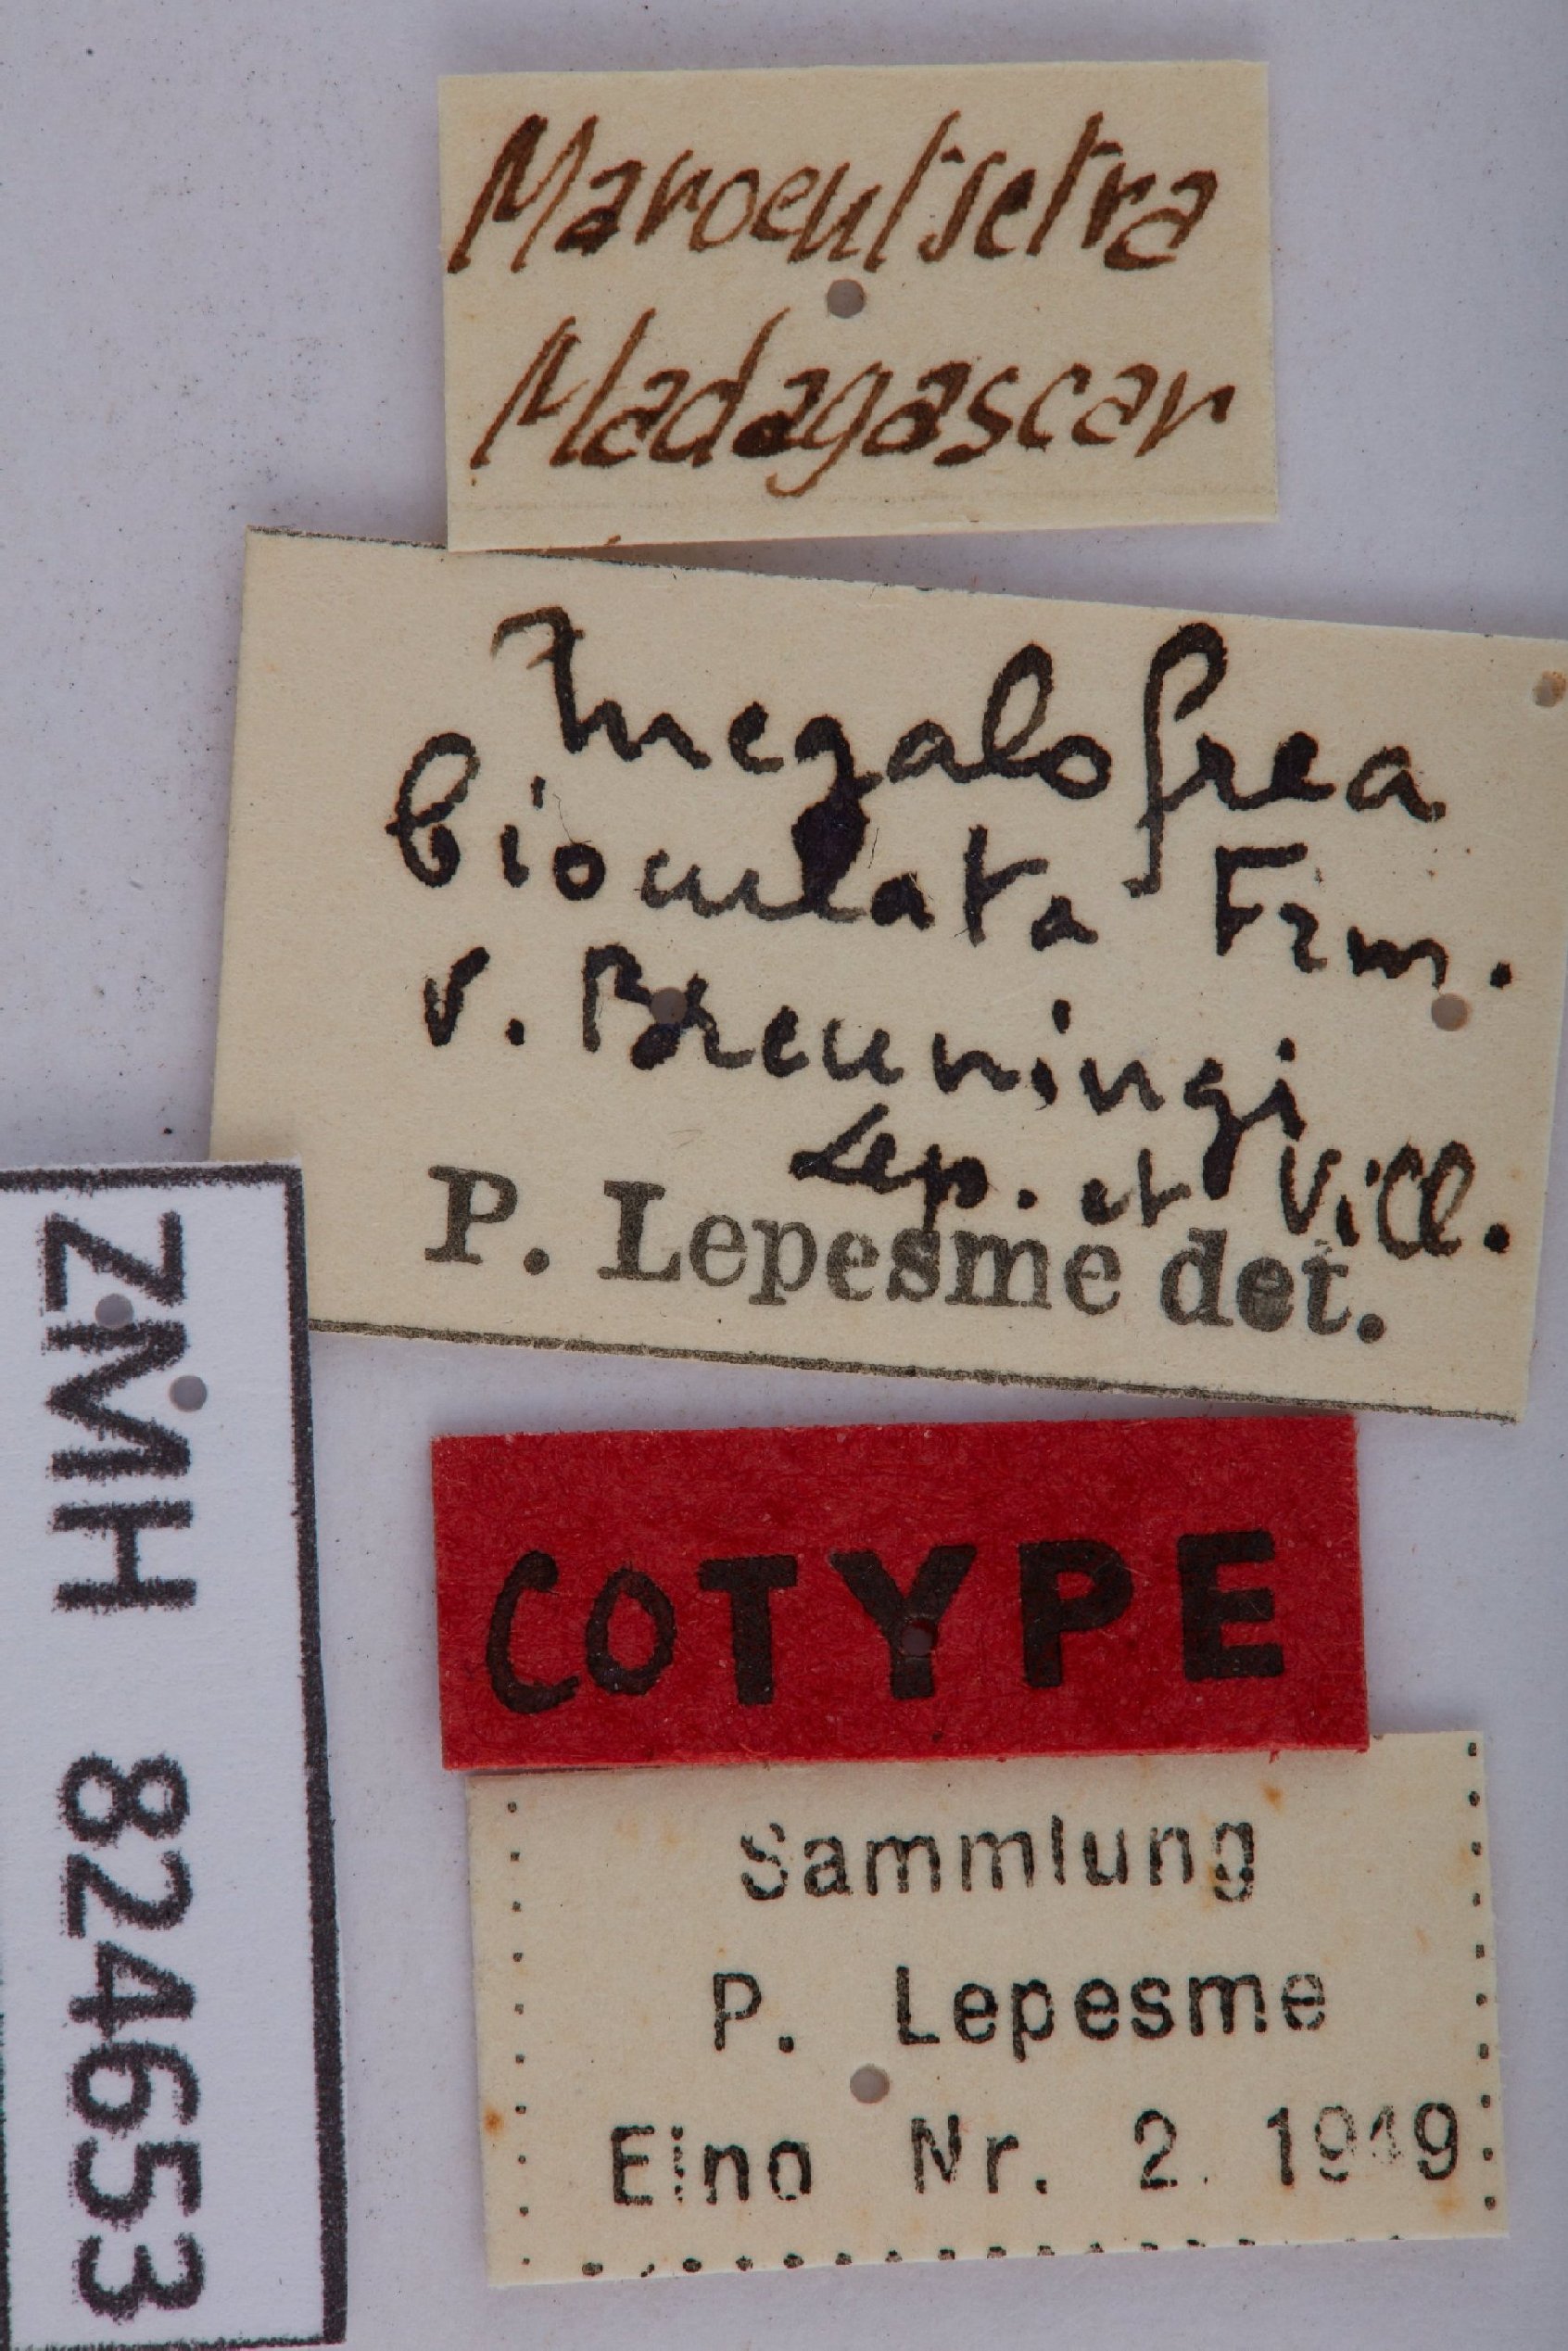 Maroentsetra
Madagascar
Megalofrea
bioculata Frm.
v. Breuningi
Lep. et Vill.
P. Lepesme det.
COTYPE
Sammlung
P. Lepesme
Eing Nr. 2. 1949
ZMH 824653